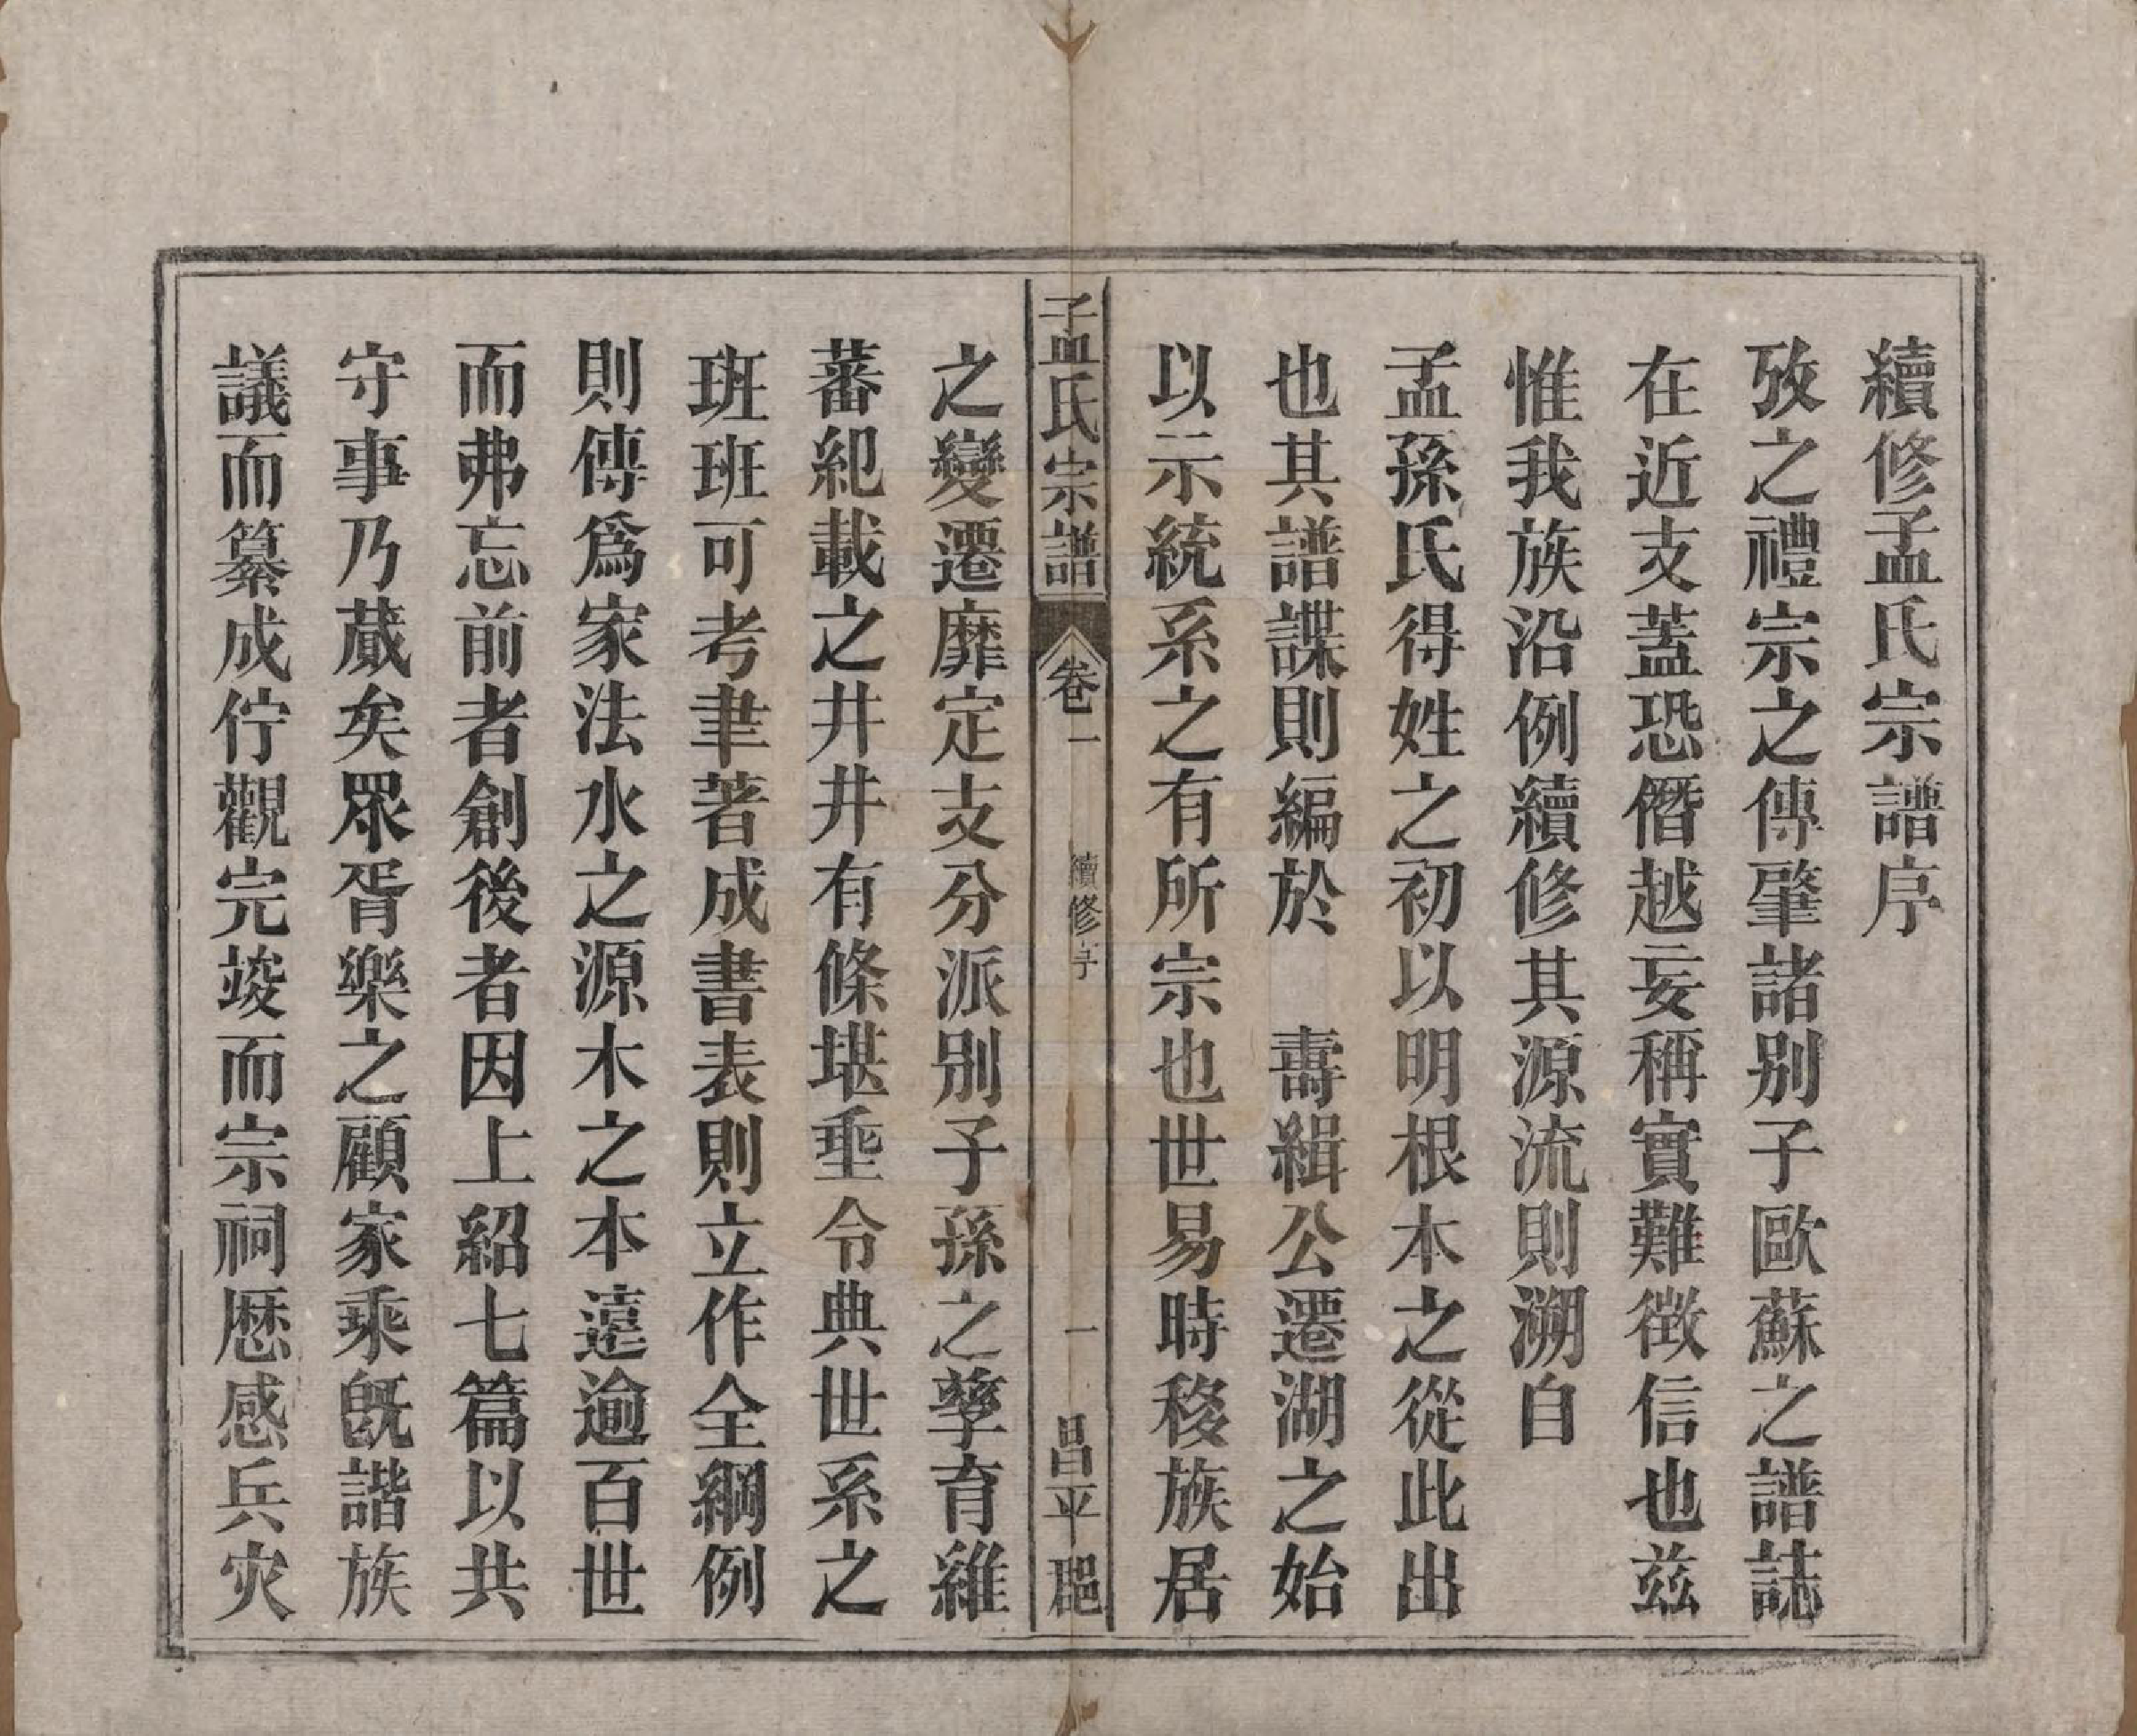 續修孟氏宗譜序
攷之禮宗之傳肇諸别子歐蘇之譜誌
在近支蓋恐僭越妄稱實難徴信也茲
惟我族沿例續修其源流則溯自
孟孫氏得姓之初以明根本之從此出
也其譜諜則編於　壽緝公遷湖之始
以示統系之有所宗也世易時移族居
孟氏宗譜
卷一
續修序
一
昌平郡
之變遷靡定支分派别子孫之孳育雖
蕃紀載之井井有條堪垂令典世系之
班班可考聿著成書表則立作全綱例
則傳爲家法水之源木之本遠逾百世
而弗忘前者創後者因上紹七篇以共
守事乃蕆矣眾胥樂之顧家乘旣諧族
議而纂成佇觀完竣而宗祠歴感兵灾